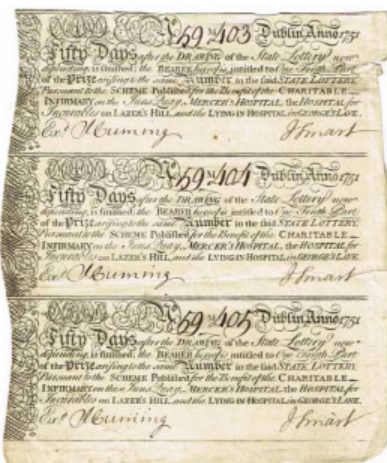 No. 59 M 403 Dublin Anno 1751
Fifty Days after the DRAWING of the State Lottery now
depending, is finished; the BEARER hereof is intitled to One Tenth Part
of the Prize arising to the same Number in the said STATE LOTTERY.
Pursuant to the SCHEME Published for the Benefit of the CHARITABLE
INFIRMARY on the Inns Quay, MERCER'S HOSPITAL, the HOSPITAL for
Incurables on LAZER'S HILL, and the LYING IN HOSPITAL in GEORGE'S LANE.
Exd. J Smart
No. 59 M 404 Dublin Anno 1751
Fifty Days after the DRAWING of the State Lottery now
depending, is finished; the BEARER hereof is intitled to One Tenth Part
of the Prize arising to the same Number in the said STATE LOTTERY.
Pursuant to the SCHEME Published for the Benefit of the CHARITABLE
INFIRMARY on the Inns Quay, MERCER'S HOSPITAL, the HOSPITAL for
Incurables on LAZER'S HILL, and the LYING IN HOSPITAL in GEORGE'S LANE.
Exd. J Smart
No. 59 M 405 Dublin Anno 1751
Fifty Days after the DRAWING of the State Lottery now
depending, is finished; the BEARER hereof is intitled to One Tenth Part
of the Prize arising to the same Number in the said STATE LOTTERY.
Pursuant to the SCHEME Published for the Benefit of the CHARITABLE
INFIRMARY on the Inns Quay, MERCER'S HOSPITAL, the HOSPITAL for
Incurables on LAZER'S HILL, and the LYING IN HOSPITAL in GEORGE'S LANE.
Exd. J Smart